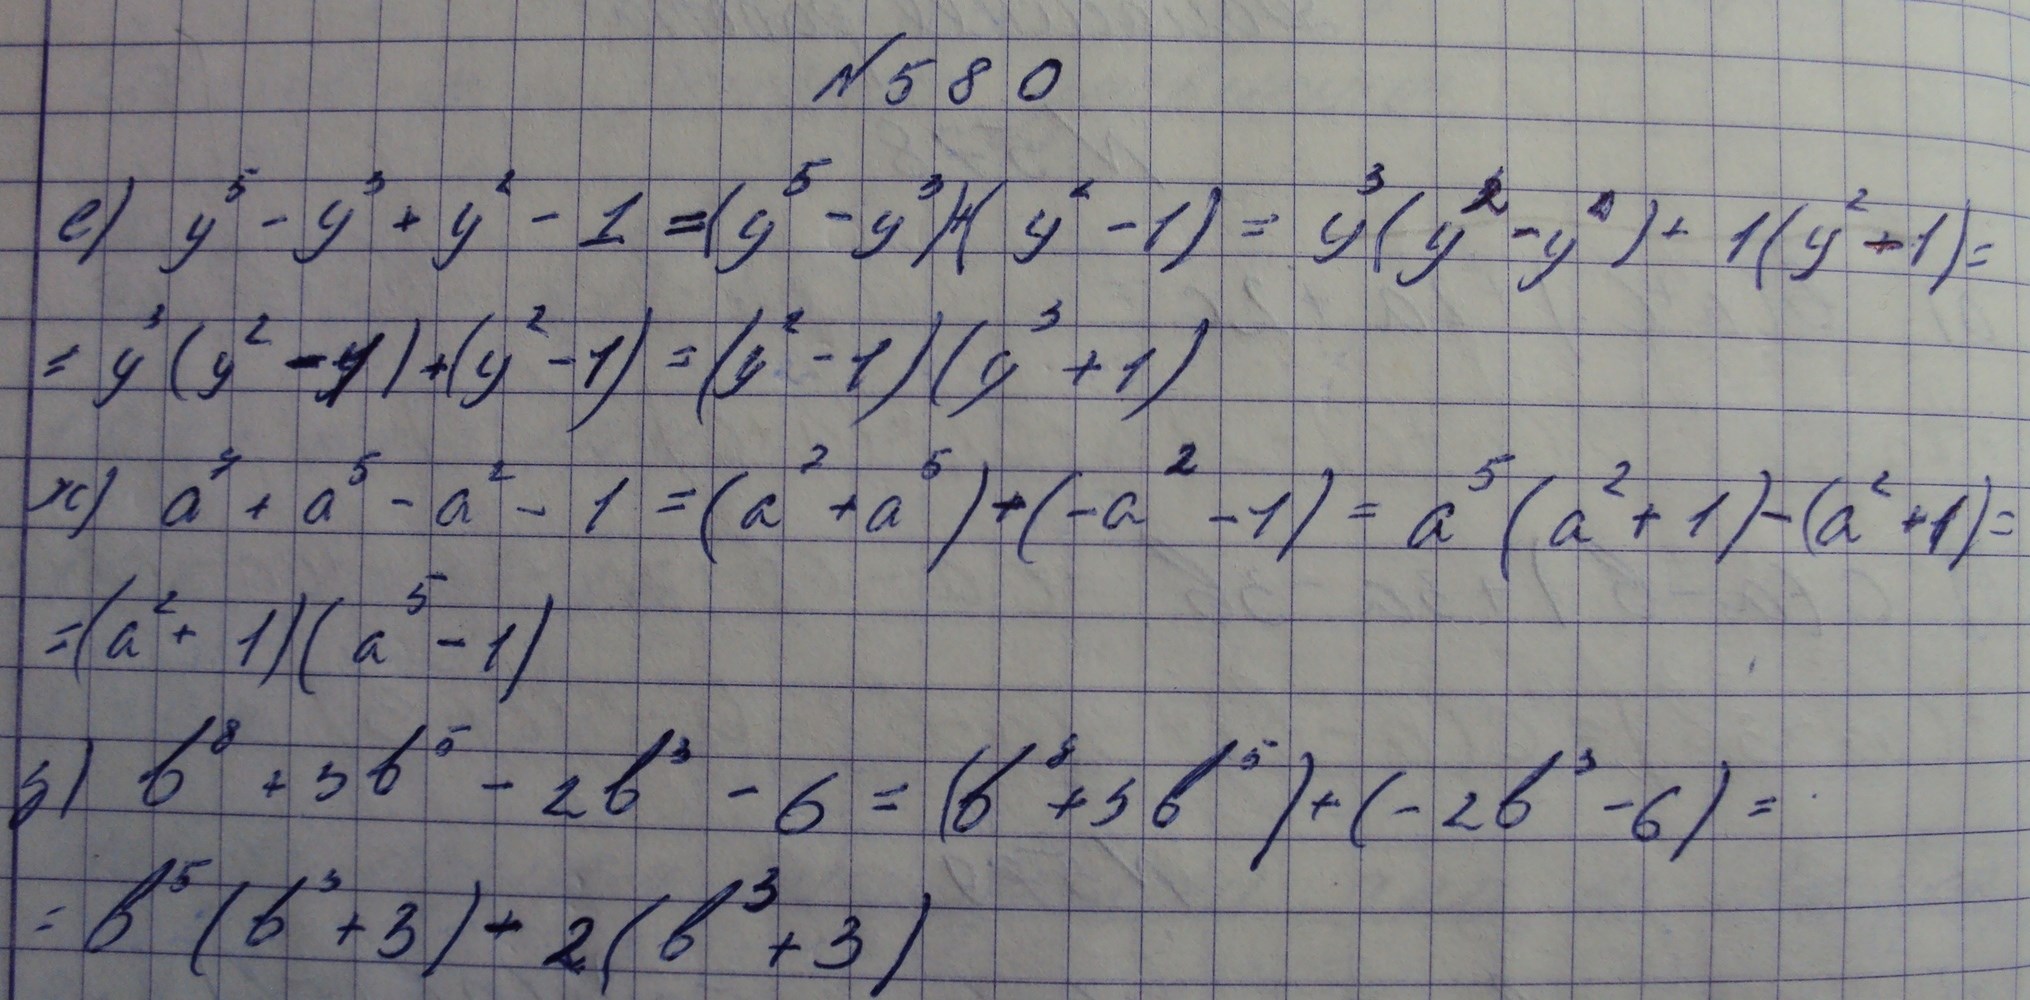 N 580
е) y⁵ - y³ + y² - 1 = (y⁵ - y³)+(y² - 1) = y³(y² - y⁰) + 1(y² - 1) =
= y³(y² - 1) + (y² - 1) = (y² - 1)(y³ + 1)
ж) a⁷ + a⁵ - a² - 1 = (a⁷ + a⁵) + (-a² - 1) = a⁵(a² + 1) - (a² + 1) =
= (a² + 1)(a⁵ - 1)
з) b⁸ + 3b⁵ - 2b³ - 6 = (b⁸ + 3b⁵) + (-2b³ - 6) =
= b⁵(b³ + 3) - 2(b³ + 3)